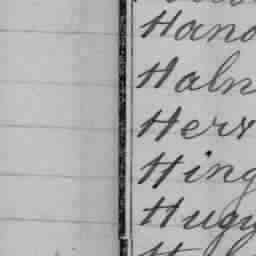 Hand
Haln
Herr
Hing
Hugg